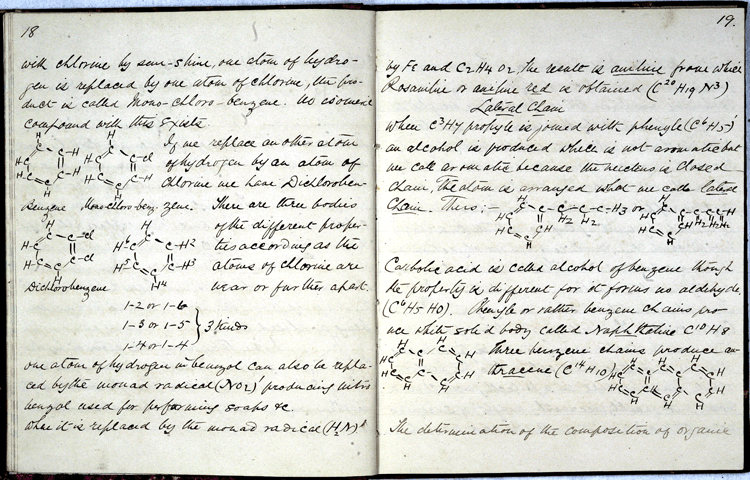 18
with chlorine by sun-shine, one atom of hydro-
gen is replaced by one atom of chlorine, the pro-
duct is called Mono-chloro-benzene. No isomeric
compound with this exists
If we replace another atom
of hydrogen by an atom of
Chlorine we have Dichloroben-
Benzene Mono-chloro-benz. zene. There are three bodies
of the different proper-
ties according as the
atoms of chlorine are
Dichlorobenzene near or further apart.
1-2 or 1-6
1-3 or 1-5 } 3 kinds
1-4 or 1-4
one atom of hydrogen in benzol can also be repla-
ced by the monad radical (NO2)' producing nitro
benzol used for performing soaps &c.
When it is replaced by the monad radical (H2N)'
19.
by Fe and C2H4O2, the result is aniline from which
Rosaniline or aniline red is obtained (C20H19N3)
Lateral Chain
When C3H7 prophyle is joined with phenyle (C6H5)'
an alcohol is produced which is not aromatic but
we call aromatic because the nucleus is closed
chain, the atom is arranged what we call lateral
Chain. Thus:- or
Carbolic acid is called alcohol of benzene though
the property is different for it forms no aldehyde.
(C6H5HO). Phenyle or rather benzene chains pro-
uce white solid body called Naphthaline C10H8
Three benzene chains produce an-
thracene (C14H10)
The determination of the composition of organic